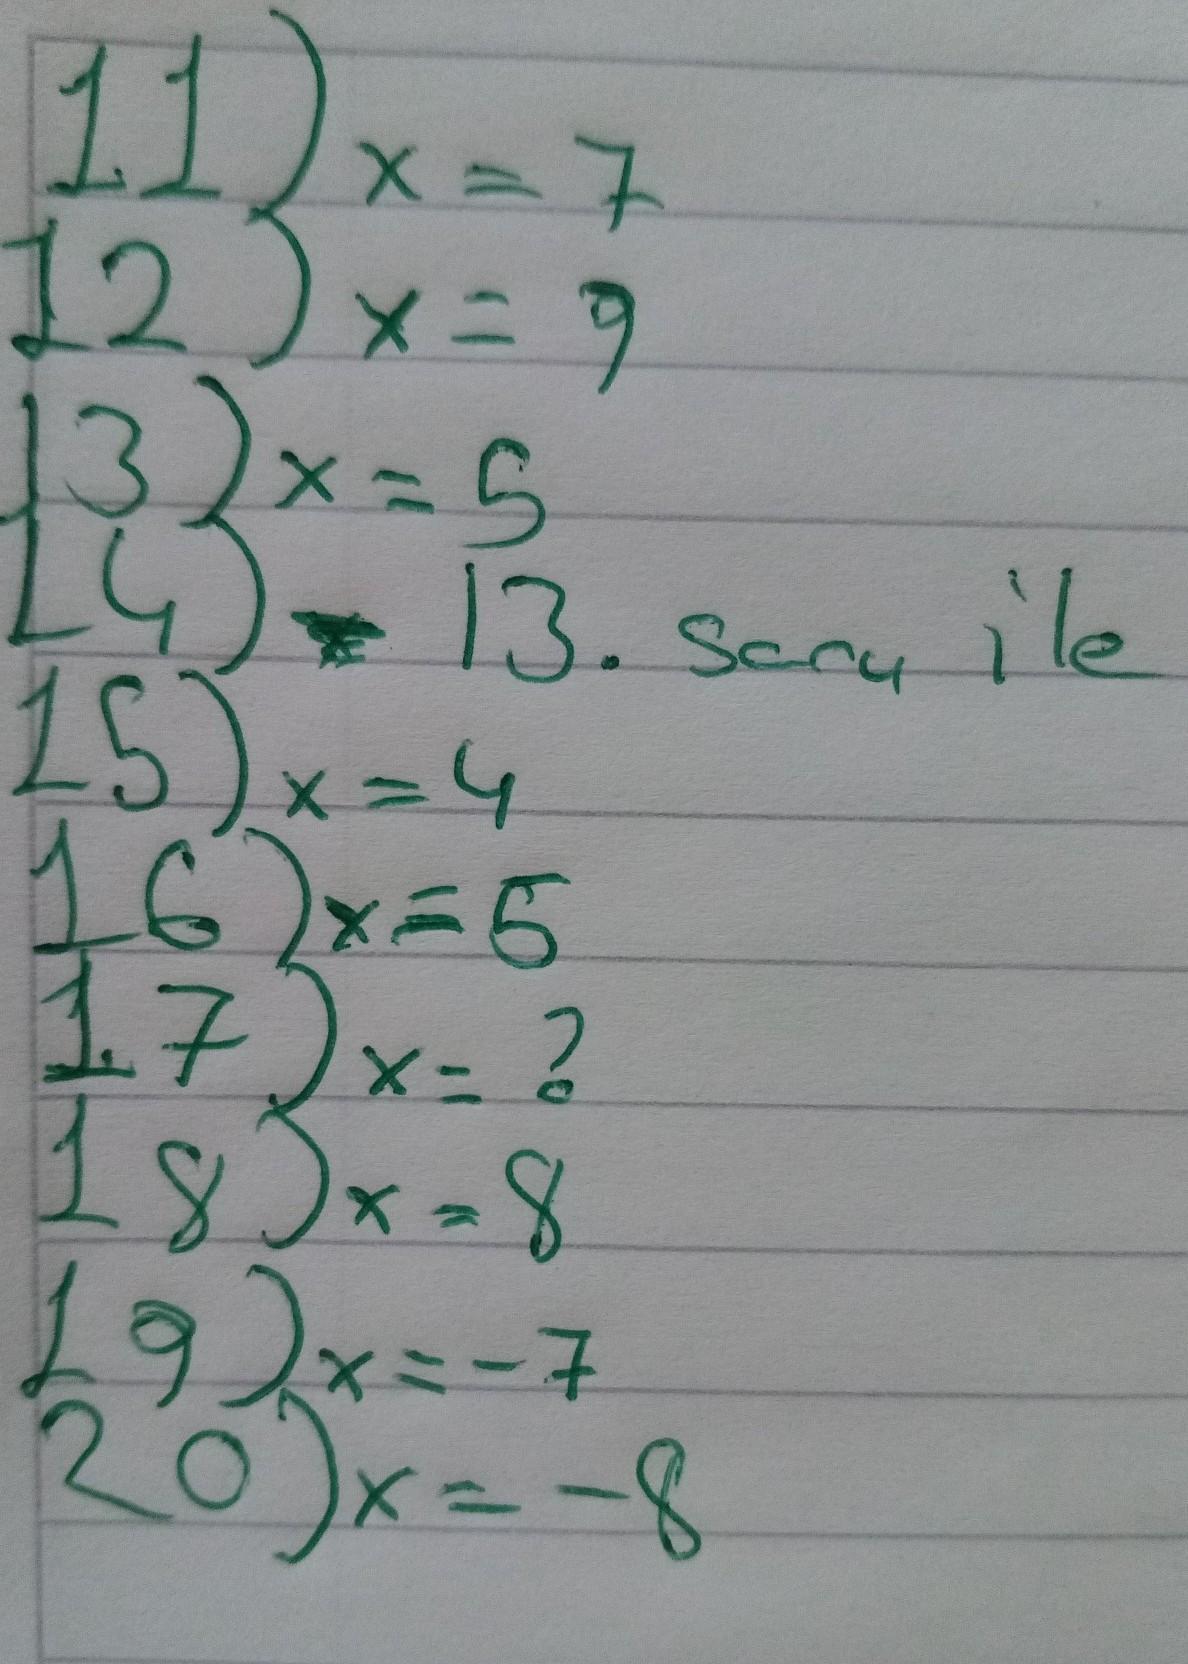 11) x = 7
12) x = 9
13) x = 5
14) 13. soru ile
15) x = 4
16) x = 5
17) x = ?
18) x = 8
19) x = -7
20) x = -8